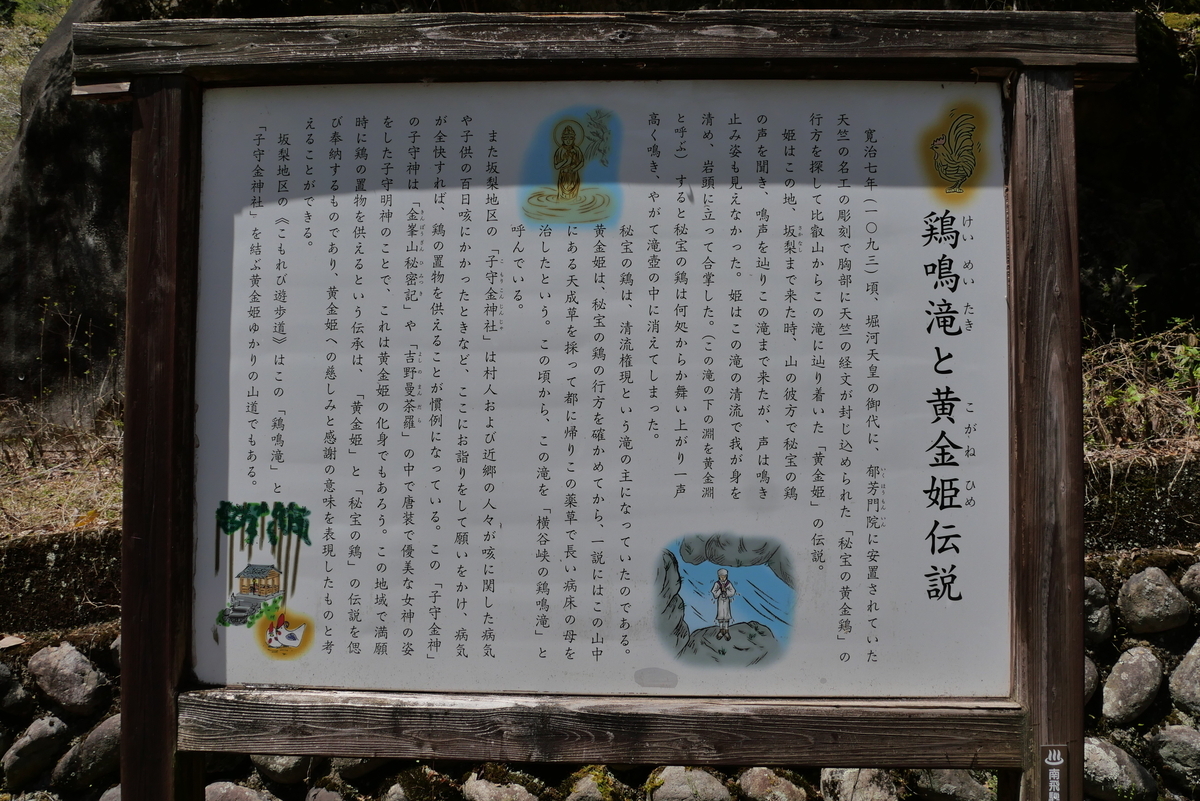 鶏鳴滝と黄金姫伝説
けいめいたき こがねひめ
寛治七年(一〇九三)頃、堀河天皇の御代に、郁芳門院に安置されていた
いくほうもんいん
天竺の名工の彫刻で胸部に天竺の経文が封じ込められた「秘宝の黄金鶏」の
行方を探して比叡山からこの滝に辿り着いた「黄金姫」の伝説。
姫はこの地、坂梨まで来た時、山の彼方で秘宝の鶏
さかなし
の声を聞き、鳴声を辿りこの滝まで来たが、声は鳴き
止み姿も見えなかった。姫はこの滝の清流で我が身を
清め、岩頭に立って合掌した。(この滝の下の淵を黄金淵
と呼ぶ)すると秘宝の鶏は何処からか舞い上がり一声
高く鳴き、やがて滝壺の中に消えてしまった。
秘宝の鶏は、清流権現という滝の主になっていたのである。
黄金姫は、秘宝の鶏の行方を確かめてから、一説にはこの山中
にある天成草を採って都に帰りこの薬草で長い病床の母を
治したという。この頃から、この滝を「横谷峡の鶏鳴滝」と
呼んでいる。
また坂梨地区の「子守金神社」は村人および近郷の人々が咳に関した病気
や子供の百日咳にかかったときなど、ここにお詣りをして願いをかけ、病気
が全快すれば、鶏の置物を供えることが慣例になっている。この「子守金神」
の子守神は「金峯山秘密記」や「吉野曼荼羅」の中で唐装で優美な女神の姿
きんぽうさんひみつき
をした子守明神のことで、これは黄金姫の化身でもあろう。この地域で満願
時に鶏の置物を供えるという伝承は、「黄金姫」と「秘宝の鶏」の伝説を偲
び奉納するものであり、黄金姫への慈しみと感謝の意味を表現したものと考
えることができる。
坂梨地区の《こもれび遊歩道》はこの「鶏鳴滝」と
「子守金神社」を結ぶ黄金姫ゆかりの山道でもある。
南飛騨